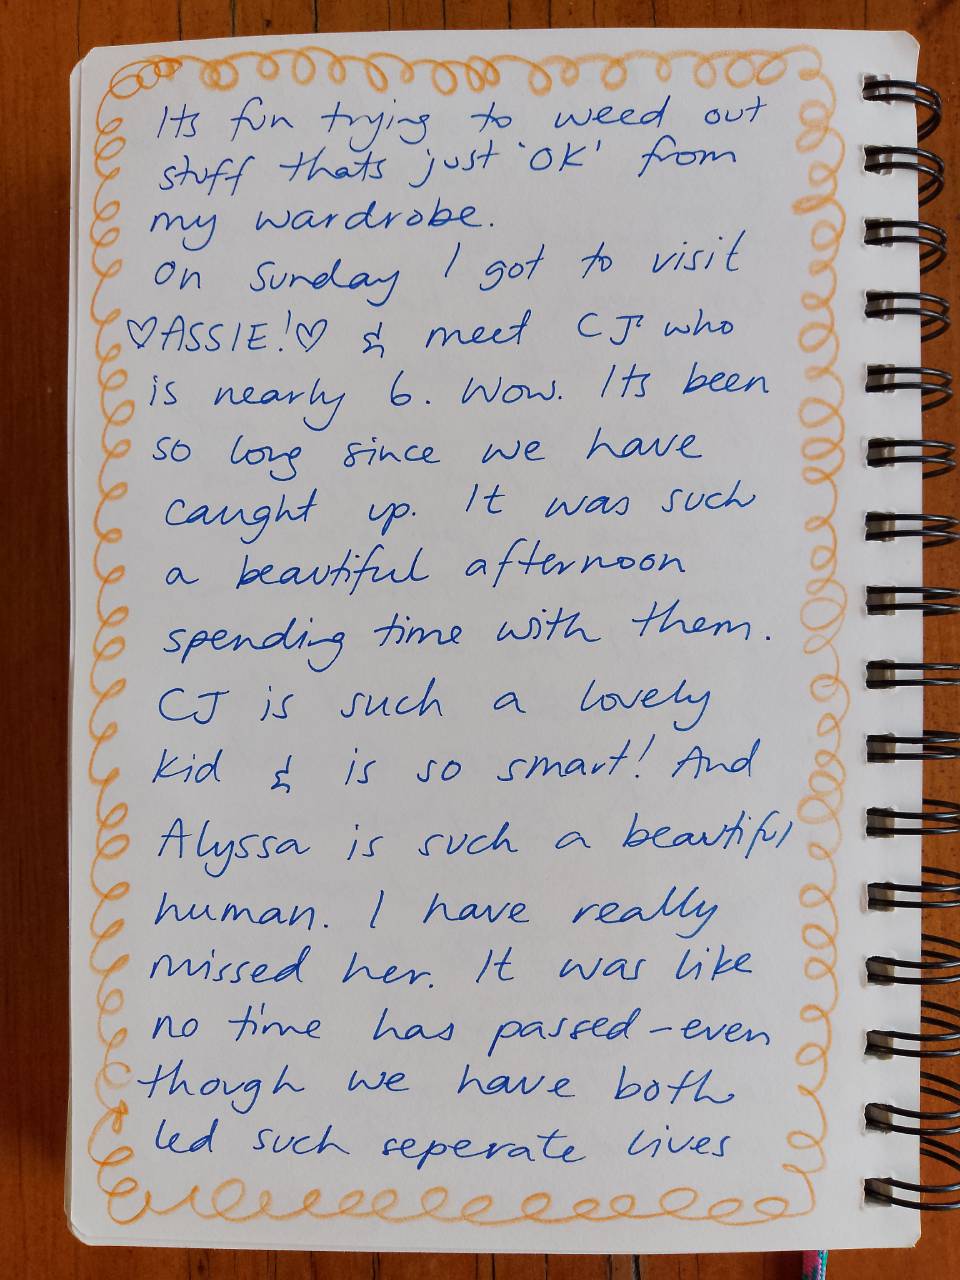 Its fun trying to weed out
stuff thats just 'OK' from
my wardrobe.
On Sunday I got to visit
♡ASSIE!♡ & meet CJ who
is nearly 6. Wow. Its been
so long since we have
caught up. It was such
a beautiful afternoon
spending time with them.
CJ is such a lovely
kid & is so smart! And
Alyssa is such a beautiful
human. I have really
missed her. It was like
no time has passed - even
though we have both
led such seperate lives